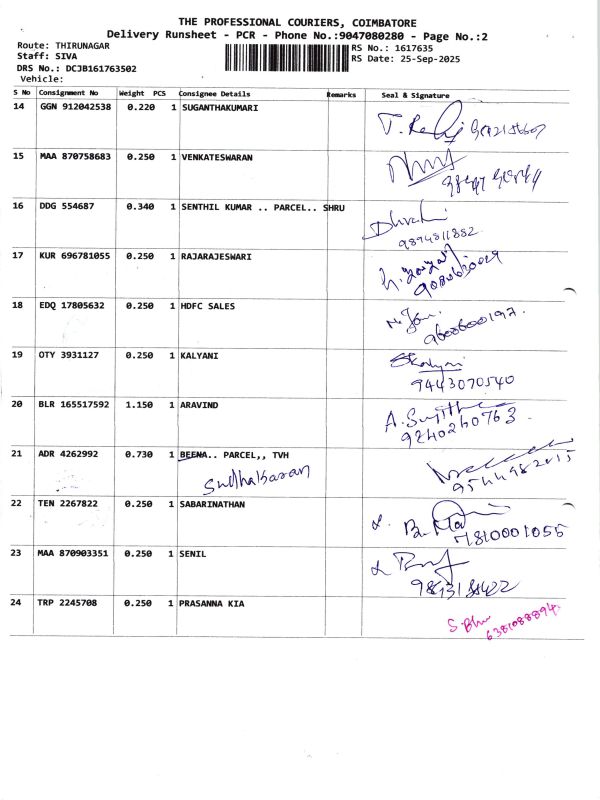 THE PROFESSIONAL COURIERS, COIMBATORE
Delivery Runsheet - PCR - Phone No.:9047080280 - Page No.:2
Route: THIRUNAGAR
Staff: SIVA
DRS No.: DCJB161763502
Vehicle:
RS No.: 1617635
RS Date: 25-Sep-2025
S No Consignment No Weight PCS Consignee Details Remarks Seal & Signature
14 GGN 912042538 0.220 1 SUGANTHAKUMARI
15 MAA 870758683 0.250 1 VENKATESWARAN
16 DDG 554687 0.340 1 SENTHIL KUMAR .. PARCEL.. SHRU
9894811882
17 KUR 696781055 0.250 1 RAJARAJESWARI
9080630029
18 EDQ 17805632 0.250 1 HDFC SALES
9600600197
19 OTY 3931127 0.250 1 KALYANI
SKalyani
9443070540
20 BLR 165517592 1.150 1 ARAVIND
A. Sujitha
9240260763
21 ADR 4262992 0.730 1 BEENA.. PARCEL,, TVH
Sudhakaran
9544982015
22 TEN 2267822 0.250 1 SABARINATHAN
7810001055
23 MAA 870903351 0.250 1 SENIL
24 TRP 2245708 0.250 1 PRASANNA KIA
6381088894